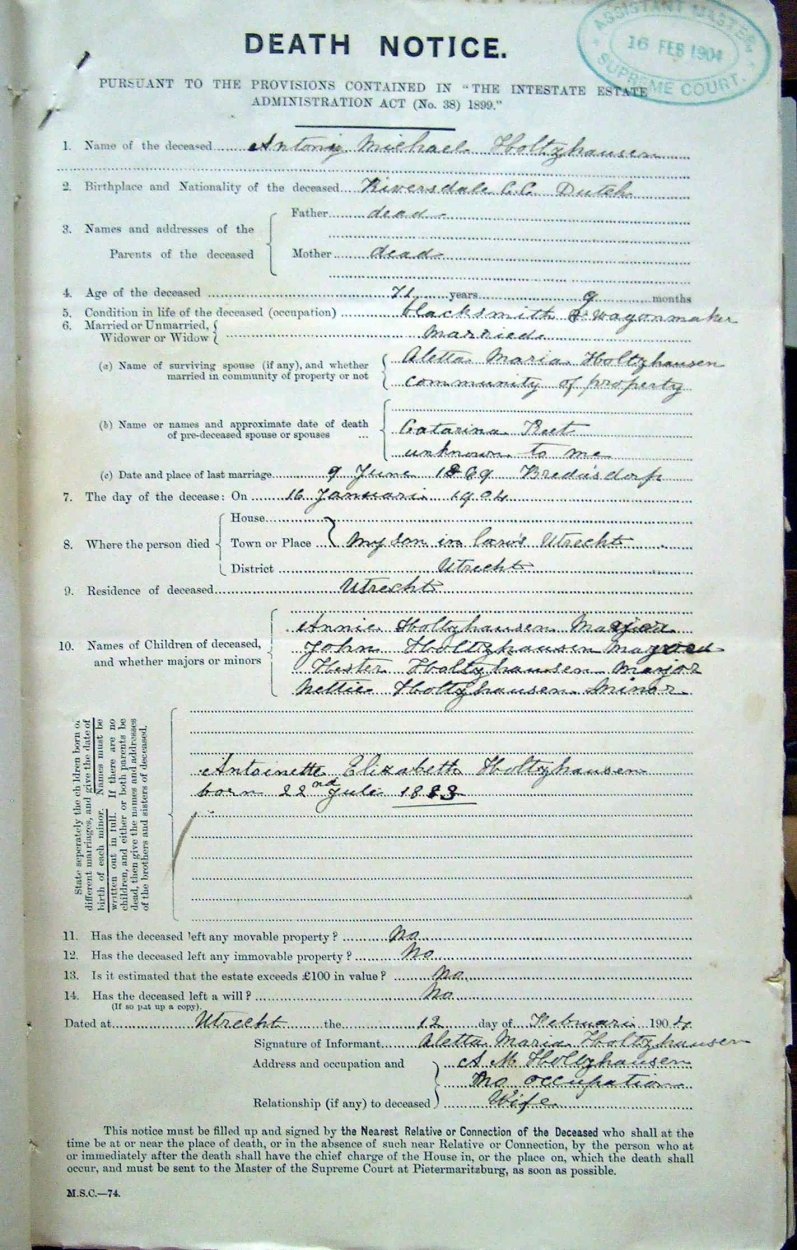 DEATH NOTICE.
ASSISTANT MASTER
16 FEB 1904
SUPREME COURT.
PURSUANT TO THE PROVISIONS CONTAINED IN "THE INTESTATE ESTATE
ADMINISTRATION ACT (No. 38) 1899."
1. Name of the deceased Antonij Michael Holtzhausen
2. Birthplace and Nationality of the deceased Riversdale C.C. Dutch
3. Names and addresses of the Parents of the deceased
Father dead
Mother dead
4. Age of the deceased 71 years 9 months
5. Condition in life of the deceased (occupation) blacksmith & wagonmaker
6. Married or Unmarried, Widower or Widow married
(a) Name of surviving spouse (if any), and whether married in community of property or not
Aletta Maria Holtzhausen
community of property
(b) Name or names and approximate date of death of pre-deceased spouse or spouses ...
Catarina
unknown to me
(c) Date and place of last marriage 9 June 1869 Bredasdorp
7. The day of the decease: On 16 Januari 1904
8. Where the person died
House
Town or Place My son in law's Utrecht
District Utrecht
9. Residence of deceased Utrecht
10. Names of Children of deceased, and whether majors or minors
Annie Holtzhausen Major
John Holtzhausen Major
Hester Holtzhausen Major
Nettie Holtzhausen Minor
State seperately the children born of
different marriages, and give the date of
birth of each minor. Names must be
written out in full. If there are no
children, and either or both parents be
dead, then give the names and addresses
of the brothers and sisters of deceased.
Antoinette Elizabeth Holtzhausen
born 22nd Juli 1883
11. Has the deceased left any movable property? No
12. Has the deceased left any immovable property? No
13. Is it estimated that the estate exceeds £100 in value? No
14. Has the deceased left a will? No
(If so put up a copy).
Dated at Utrecht the 12 day of Februari 1904
Signature of Informant Aletta Maria Holtzhausen
Address and occupation and A M Holtzhausen
No occupation
Relationship (if any) to deceased Wife
This notice must be filled up and signed by the Nearest Relative or Connection of the Deceased who shall at the
time be at or near the place of death, or in the absence of such near Relative or Connection, by the person who at
or immediately after the death shall have the chief charge of the House in, or the place on, which the death shall
occur, and must be sent to the Master of the Supreme Court at Pietermaritzburg, as soon as possible.
M.S.C.—74.